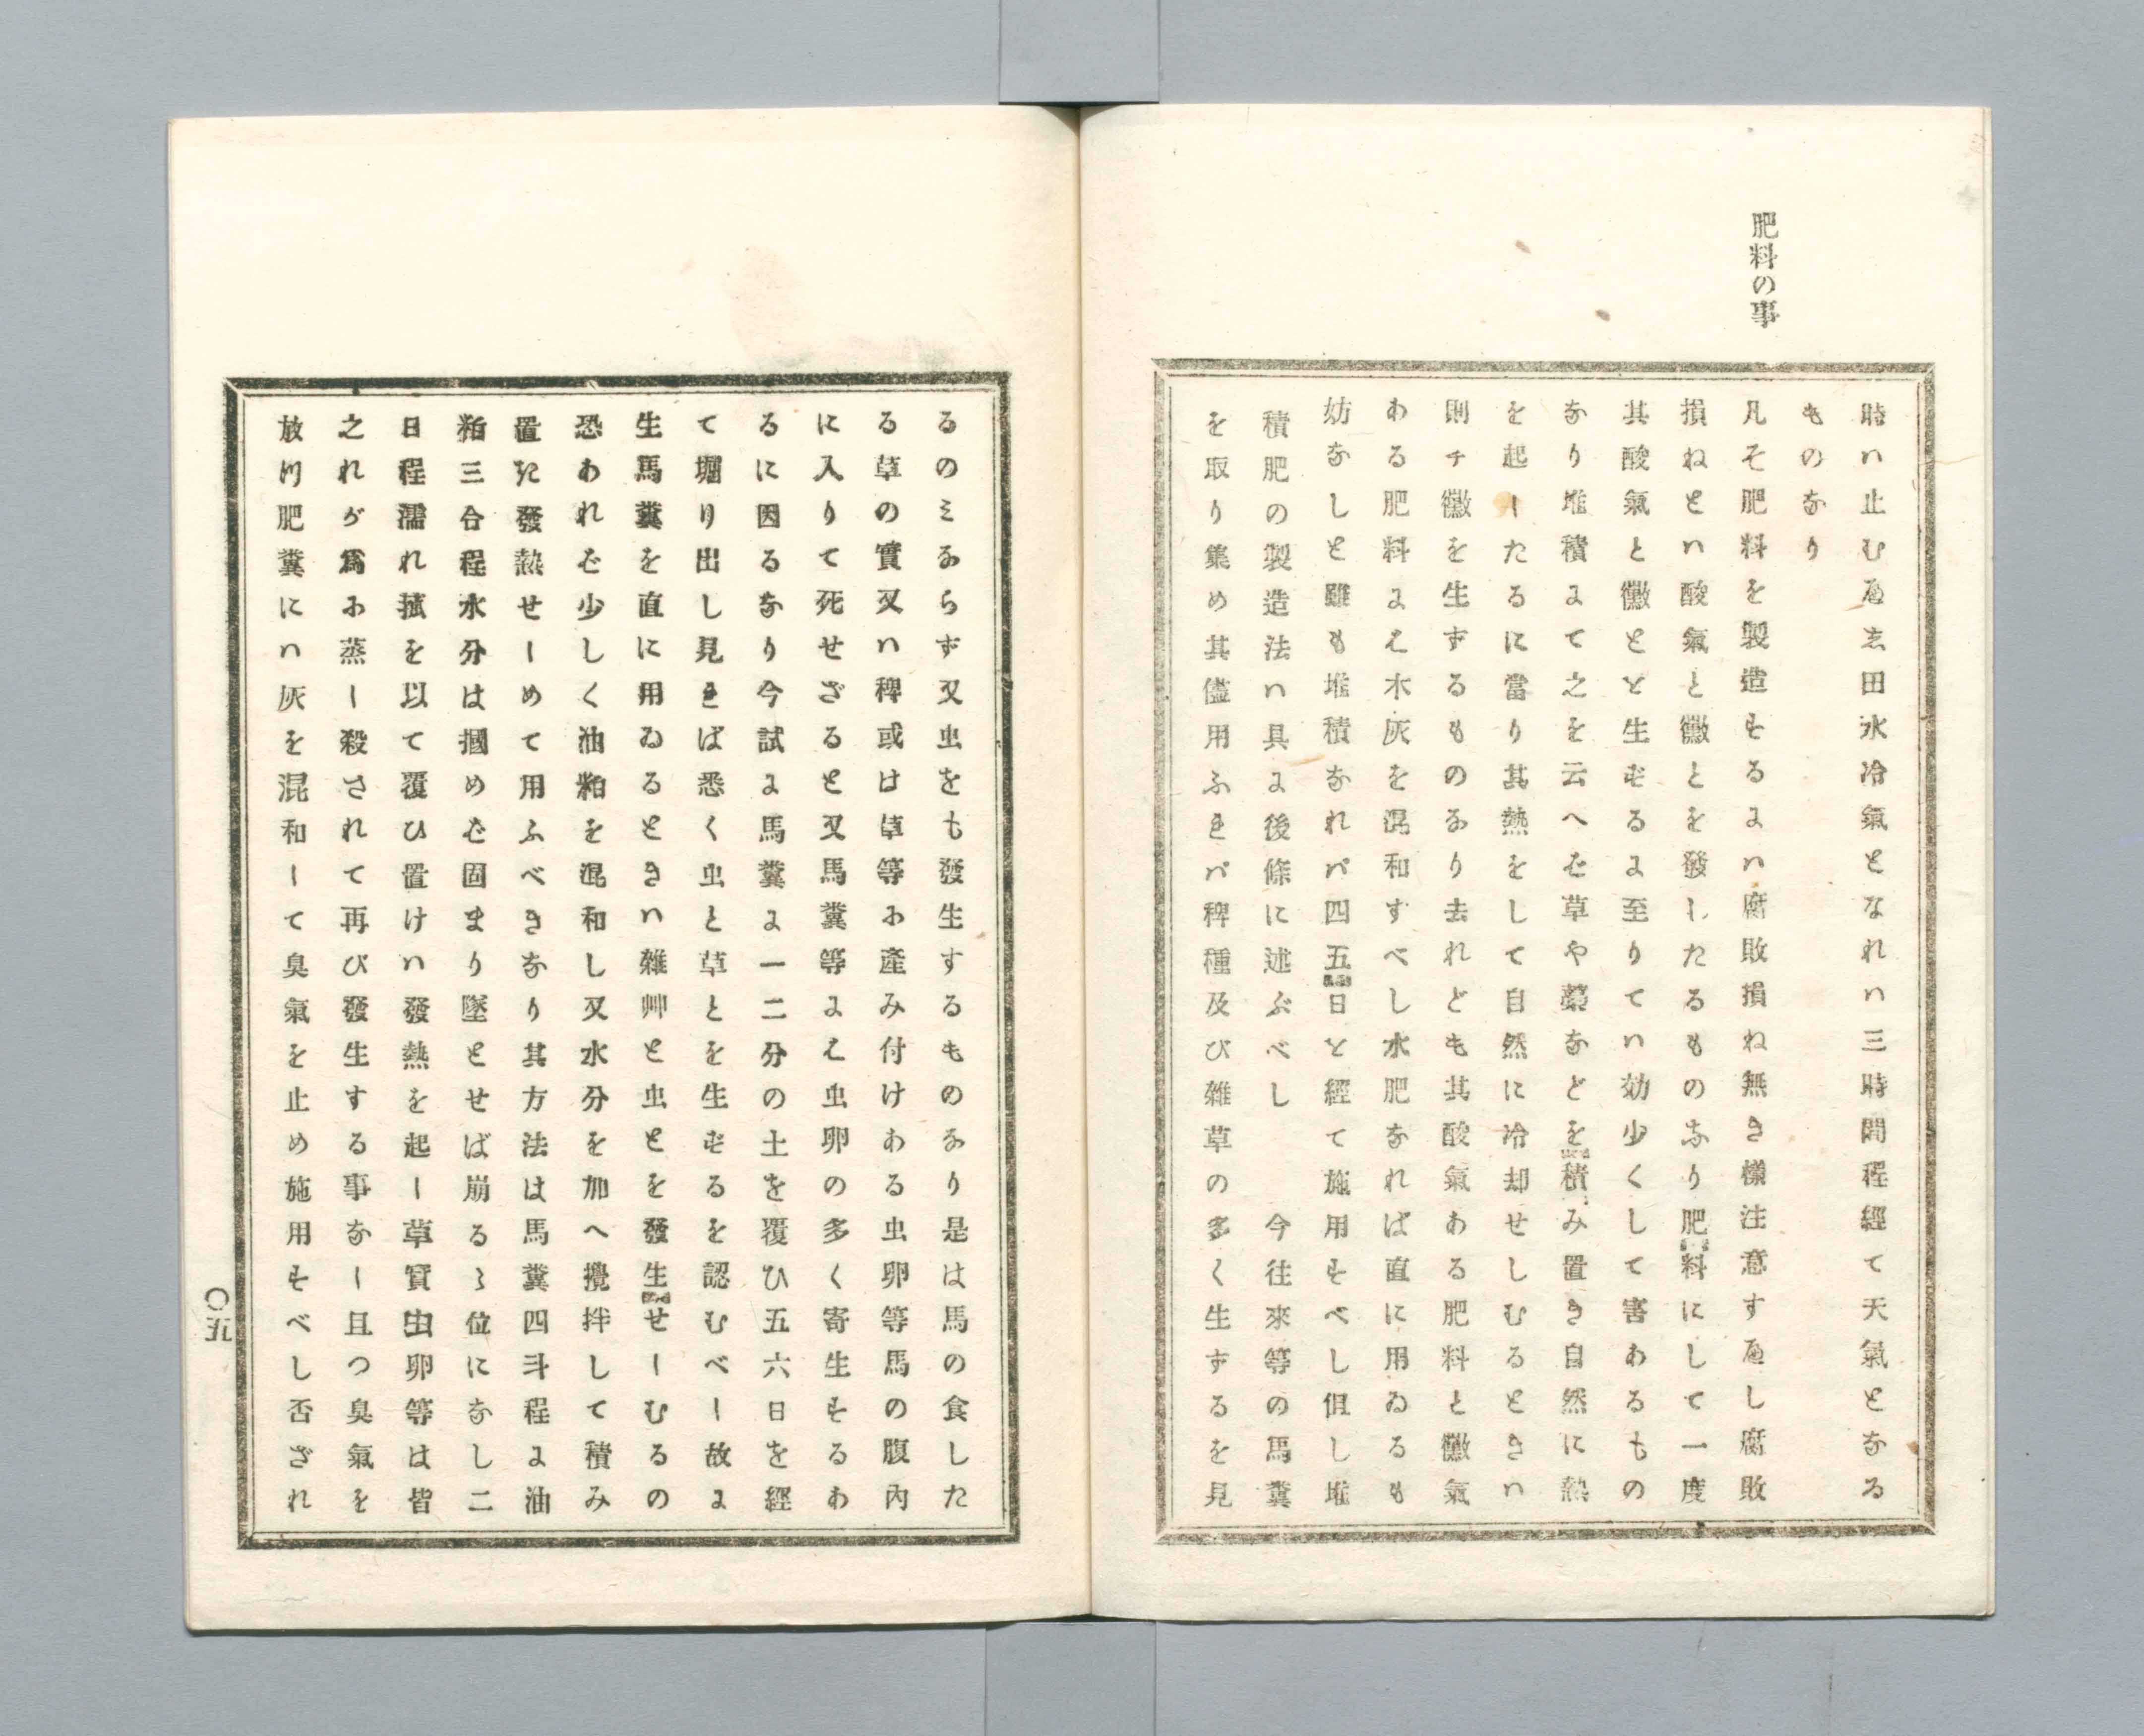 肥料の事
時ハ止むべゑ田水冷氣となれハ三時間程經て天氣となる
ものなり
凡そ肥料を製造するにハ腐敗損ね無き樣注意すべし腐敗
損ねとハ酸氣と黴とを發したるものなり肥料にして一度
其酸氣と黴とを生ずるに至りてハ効少くして害あるもの
なり堆積にて之を云へば草や藁などを積み置き自然に熱
を起したるに當り其熱をして自然に冷却せしむるときハ
則チ黴を生ずるものなり去れども其酸氣ある肥料と黴氣
ある肥料にハ木灰を混和すべし水肥なれば直に用ゐるも
妨なしと雖も堆積なれバ四五日を經て施用すべし但し堆
積肥の製造法ハ具に後條に述ぶべし　今往來等の馬糞
を取り集め其儘用ふれバ稗種及び雜草の多く生ずるを見
るのミならず又虫をも發生するものなり是は馬の食した
る草の實又ハ稗或は草等に產み付けある虫卵等馬の腹內
に入りて死せざると又馬糞等にハ虫卵の多く寄生するあ
るに因るなり今試に馬糞に一二分の土を覆ひ五六日を經
て堀り出し見れば悉く虫と草とを生ずるを認むべし故に
生馬糞を直に用ゐるときハ雜艸と虫とを發生せしむるの
恐あれば少しく油粕を混和し又水分を加へ攪拌して積み
置き發熱せしめて用ふべきなり其方法は馬糞四斗程に油
粕三合程水分は摑めば固まり墜とせば崩るゝ位になし二
日程濡れ莚を以て覆ひ置けハ發熱を起し草實虫卵等は皆
之れが爲に蒸し殺されて再び發生する事なし且つ臭氣を
放つ肥糞にハ灰を混和して臭氣を止め施用すべし否ざれ